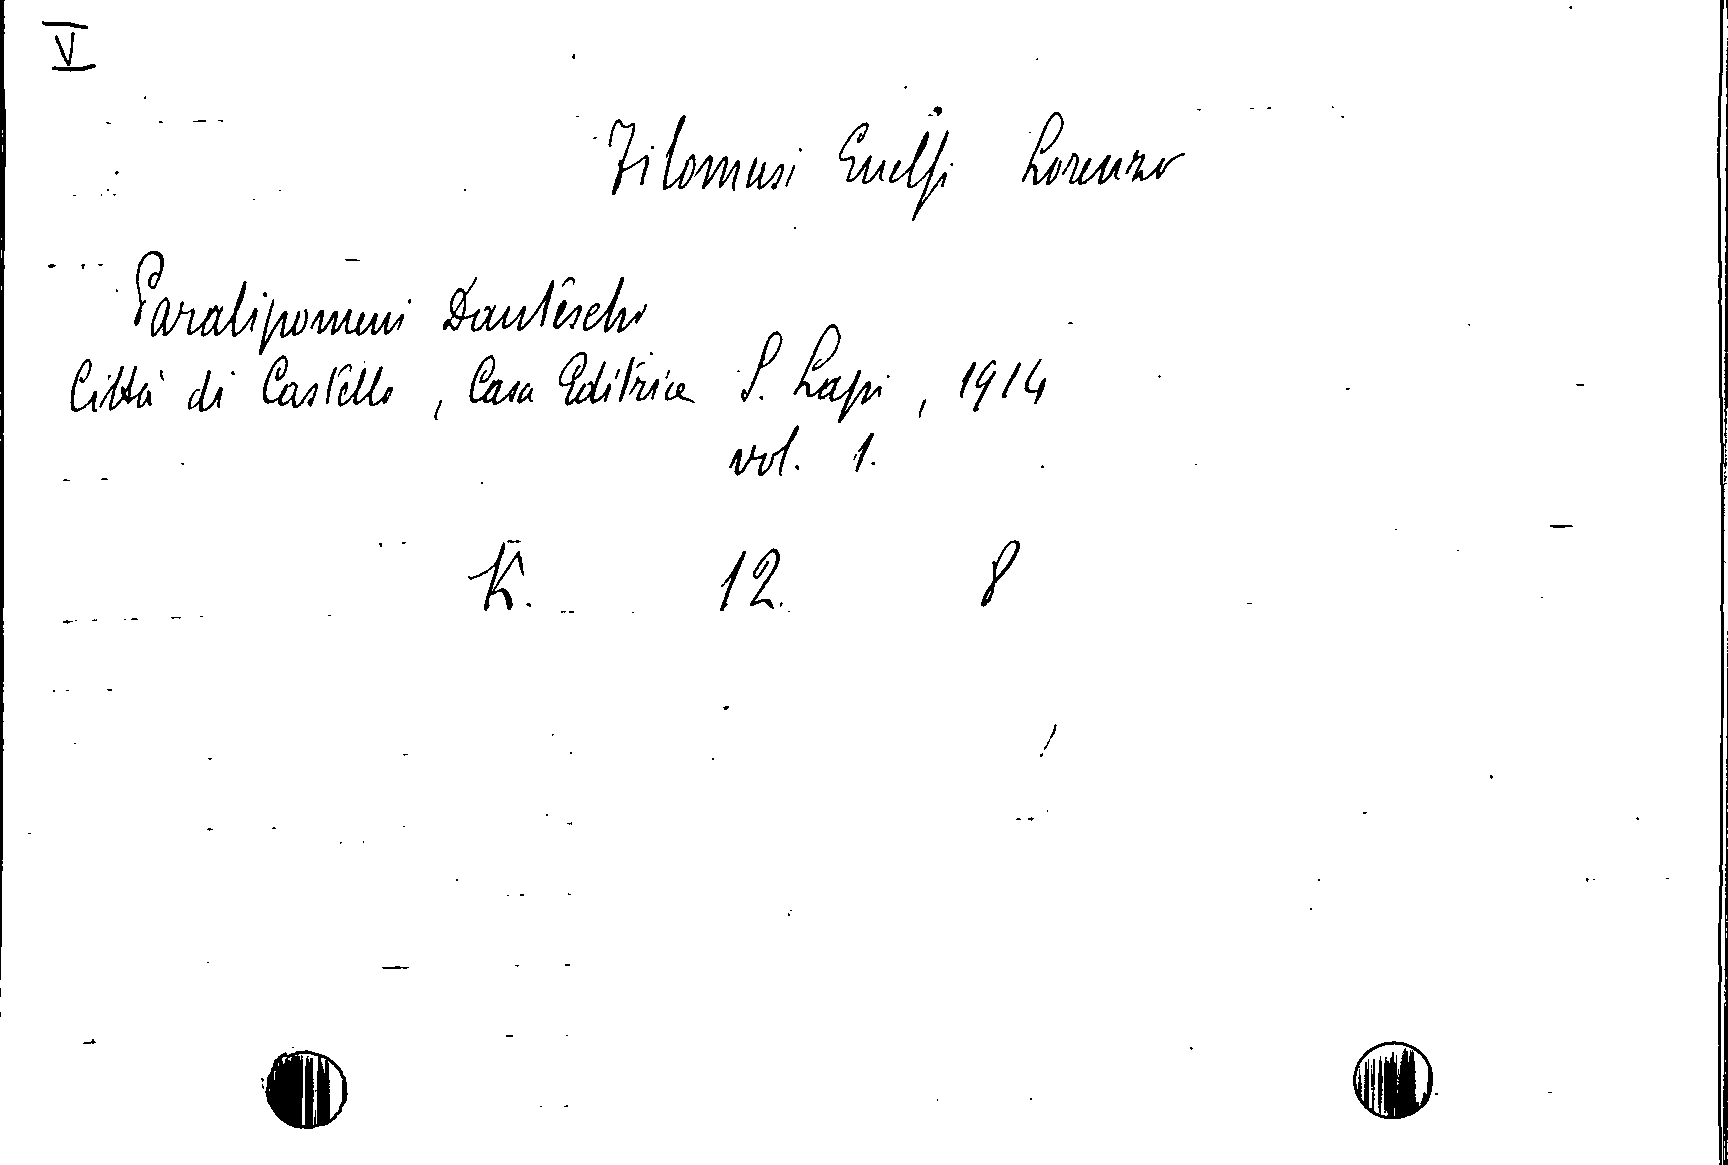 V
Filomusi Guelfi Lorenzo
Paralipomeni Danteschi
Città di Castello, Casa Editrice S. Lapi, 1914
vol. 1.
K. 12. 8